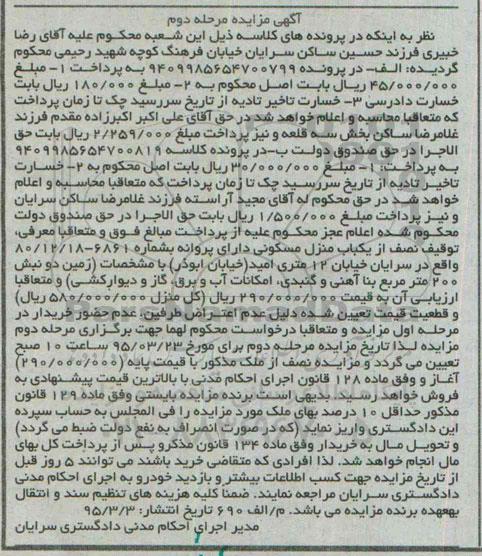 آگهی مزایده مرحله دوم
نظر به اینکه در پرونده های کلاسه ذیل این شعبه محکوم علیه آقای رضا
خبیری فرزند حسین ساکن سرایان خیابان فرهنگ کوچه شهید رحیمی محکوم
گردیده: الف- در پرونده ۹۴۰۹۹۸۵۶۵۴۷۰۰۷۹۹ به پرداخت ۱- مبلغ
۴۵/۰۰۰/۰۰۰ ریال بابت اصل محکوم به ۲- مبلغ ۱۸۰/۰۰۰ ریال بابت
خسارت دادرسی ۳- خسارت تاخیر تادیه از تاریخ سررسید چک تا زمان پرداخت
که متعاقبا محاسبه و اعلام خواهد شد در حق آقای علی اکبر اکبرزاده مقدم فرزند
غلامرضا ساکن بخش سه قلعه و نیز پرداخت مبلغ ۲/۲۵۹/۰۰۰ ریال بابت حق
الاجرا در حق صندوق دولت ب-در پرونده کلاسه ۹۴۰۹۹۸۵۶۵۴۷۰۰۸۱۹
به پرداخت: ۱- مبلغ ۳۰/۰۰۰/۰۰۰ ریال بابت اصل محکوم به ۲- خسارت
تاخیر تادیه از تاریخ سررسید چک تا زمان پرداخت که متعاقبا محاسبه و اعلام
خواهد شد در حق محکوم له آقای مجید آراسته فرزند غلامرضا ساکن سرایان
و نیز پرداخت مبلغ ۱/۵۰۰/۰۰۰ ریال بابت حق الاجرا در حق صندوق دولت
محکوم شده اعلام عجز محکوم علیه از پرداخت مبالغ فوق و متعاقبا معرفی،
توقیف نصف از یکباب منزل مسکونی دارای پروانه بشماره ۶۸۶۱-۸۰/۱۲/۱۸
واقع در سرایان خیابان ۱۲ متری امید(خیابان ابوذر) با مشخصات (زمین دو نبش
۲۰۰ متر مربع بنا آهنی و گنبدی، امکانات آب و برق، گاز و دیوارکشی) و متعاقبا
ارزیابی آن به قیمت ۲۹۰/۰۰۰/۰۰۰ ریال (کل منزل ۵۸۰/۰۰۰/۰۰۰ ریال)
و قطعیت قیمت تعیین شده دلیل عدم اعتراض طرفین، عدم حضور خریدار در
مرحله اول مزایده و متعاقبا درخواست محکوم لهما جهت برگزاری مرحله دوم
مزایده لذا تاریخ مزایده مرحله دوم برای مورخ ۹۵/۰۳/۲۳ ساعت ۱۰ صبح
تعیین می گردد و مزایده نصف از ملک مذکور با قیمت پایه (۲۹۰/۰۰۰/۰۰۰)
آغاز و وفق ماده ۱۲۸ قانون اجرای احکام مدنی با بالاترین قیمت پیشنهادی به
فروش خواهد رسید. بدیهی است برنده مزایده بایستی وفق ماده ۱۲۹ قانون
مذکور حداقل ۱۰ درصد بهای ملک مورد مزایده را فی المجلس به حساب سپرده
این دادگستری واریز نماید (که در صورت انصراف به نفع دولت ضبط می گردد)
و تحویل مال به خریدار وفق ماده ۱۳۴ قانون مذکرو پس از پرداخت کل بهای
مال انجام خواهد شد. لذا افرادی که متقاضی خرید باشند می توانند ۵ روز قبل
از تاریخ مزایده جهت کسب اطلاعات بیشتر و بازدید خودرو به اجرای احکام مدنی
دادگستری سرایان مراجعه نمایند. ضمنا کلیه هزینه های تنظیم سند و انتقال
بهعهده برنده مزایده می باشد. م/الف ۶۹۰ تاریخ انتشار: ۹۵/۳/۳
مدیر اجرای احکام مدنی دادگستری سرایان